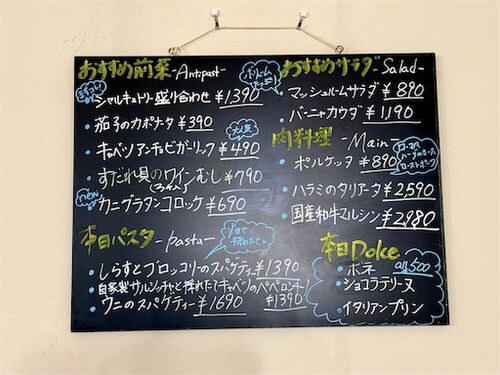 おすすめ前菜 -Antipast-
シャルキュトリー盛り合わせ ¥1,390
茄子のカポナータ ¥390
大人気
キャベツアンチョビガーリック ¥490
すだれ貝のワインむし ¥790
new
カニグラタンコロッケ ¥690
本日パスタ -pasta-
しらすとブロッコリーのスパゲティ ¥1390
自家製サルシッチャと採れたてキャベツのペペロンチーノ ¥1390
ウニのスパゲティー ¥1690
おすすめサラダ -Salad-
マッシュルームサラダ ¥890
バーニャカウダ ¥1,190
肉料理 -Main-
ポルケッタ ¥890
ハラミのタリアータ ¥2,590
国産和牛マルシン ¥2,980
本日Dolce
all 500
・ボネ
・ショコラテリーヌ
・イタリアンプリン